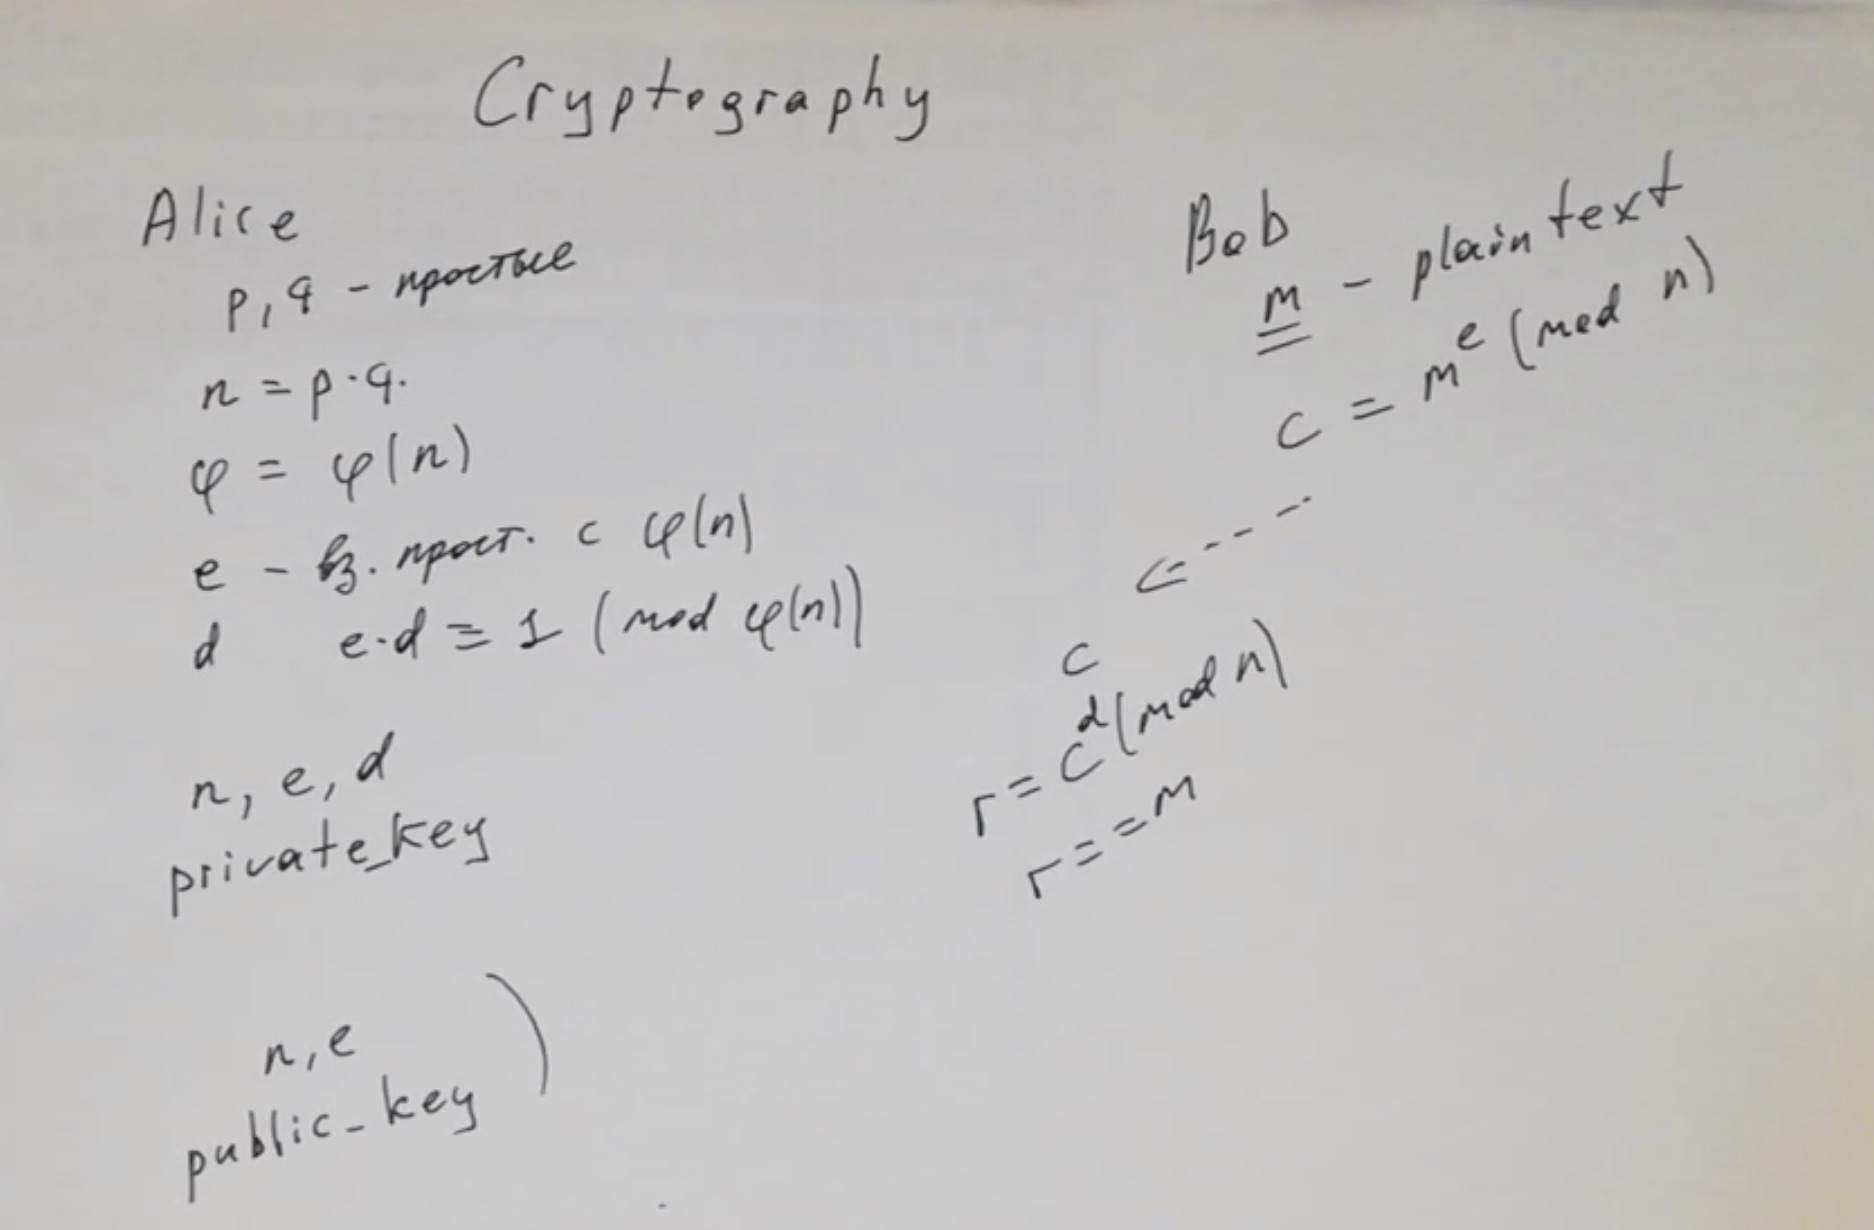 Cryptography
Alice
p, q - простые
n = p·q.
φ = φ(n)
e - вз. прост. с φ(n)
d e·d ≡ 1 (mod φ(n))
n, e, d
private_key
n, e
public_key
Bob
m - plain text
c = m^e (mod n)
c
r = c^d (mod n)
r == m